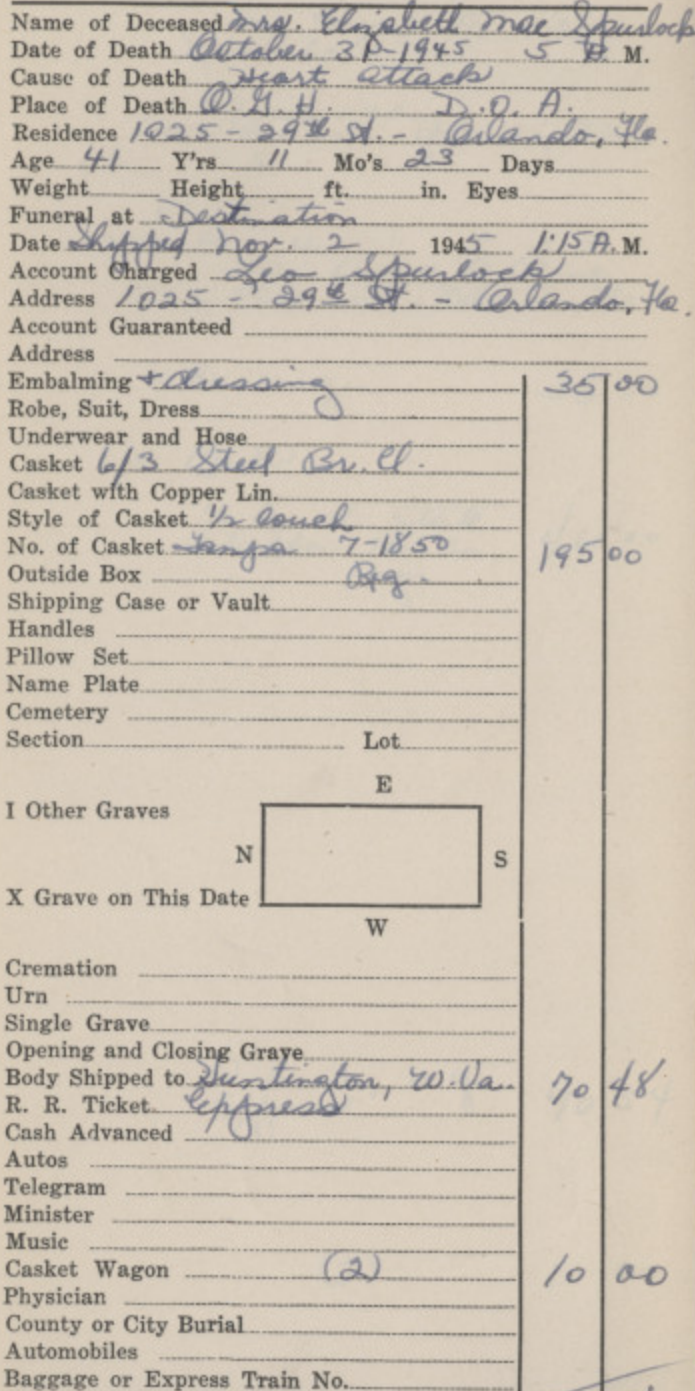 Name of Deceased Mrs. Elizabeth Mae Spurlock
Date of Death October 31-1945 5 P. M.
Cause of Death Heart attack
Place of Death O. G. H. D. O. A.
Residence 1025 - 29th St. - Orlando, Fla.
Age 41 Y'rs 11 Mo's 23 Days
Weight Height ft. in. Eyes
Funeral at Destination
Date Shipped Nov. 2 1945 1:15 A. M.
Account Charged Leo Spurlock
Address 1025 - 29th St. - Orlando, Fla.
Account Guaranteed
Address
Embalming + dressing 35 00
Robe, Suit, Dress
Underwear and Hose
Casket 6/3 Steel Br. Cl.
Casket with Copper Lin.
Style of Casket 1/2 couch
No. of Casket Tampa 7-1850 195 00
Outside Box
Shipping Case or Vault
Handles
Pillow Set
Name Plate
Cemetery
Section Lot
E
I Other Graves
N S
X Grave on This Date
W
Cremation
Urn
Single Grave
Opening and Closing Grave
Body Shipped to Huntington, W. Va. 70 48
R. R. Ticket Express
Cash Advanced
Autos
Telegram
Minister
Music
Casket Wagon (2) 10 00
Physician
County or City Burial
Automobiles
Baggage or Express Train No.